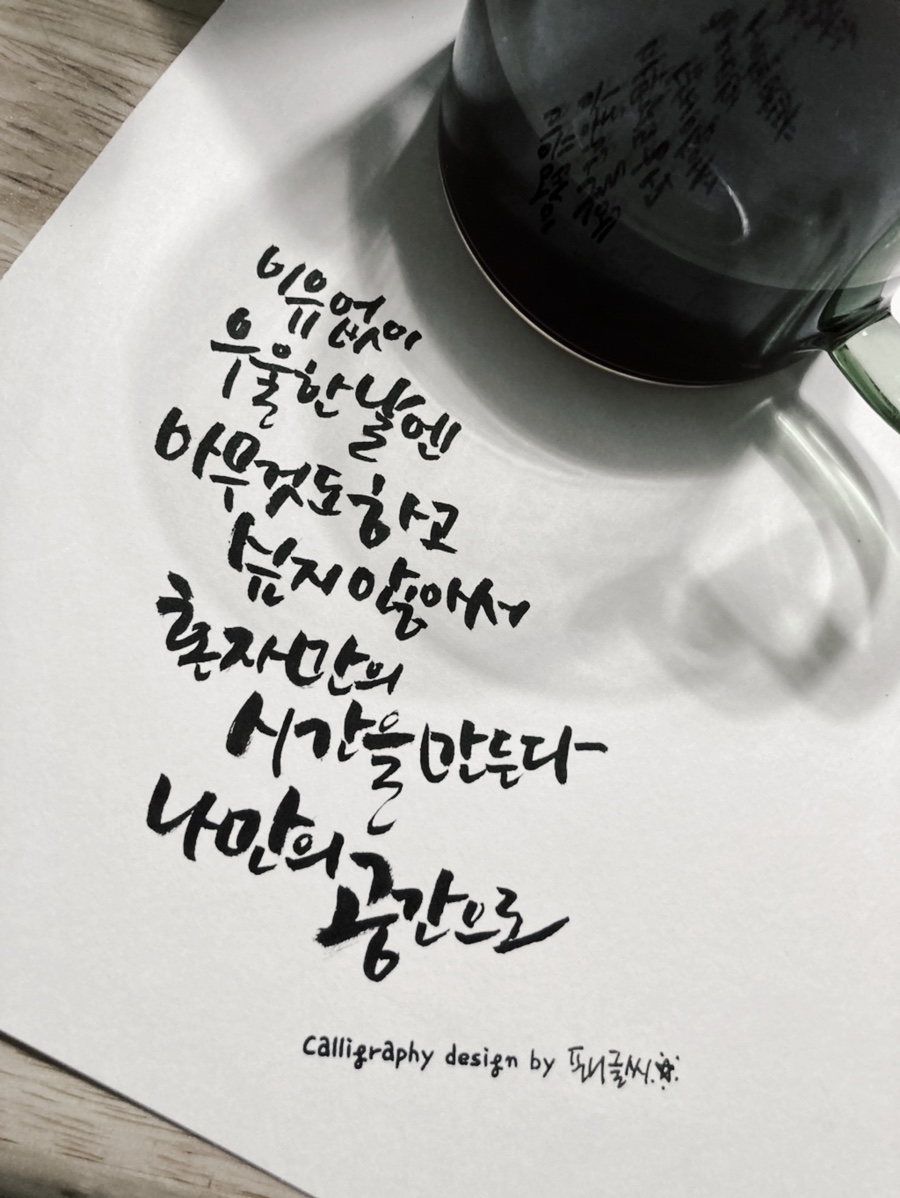 이유없이
우울한 날엔
아무것도 하고
싶지 않아서
혼자만의
시간을 만든다
나만의 공간으로
Calligraphy design by